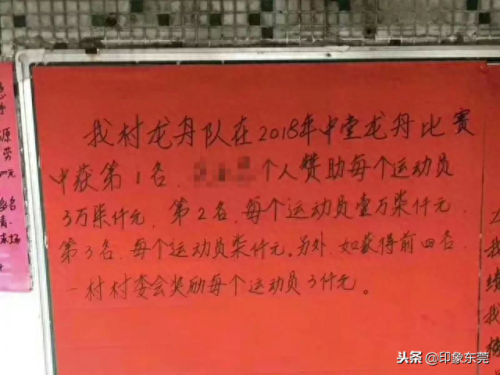 我村龙舟队在2018年中堂龙舟比赛
中获第1名、个人赞助每个运动员
3万柒仟元、第2名、每个运动员壹万柒仟元、
第3名、每个运动员柒仟元。另外、如获得前四名、
一村村委会奖励每个运动员3仟元。
头条 @印象东莞